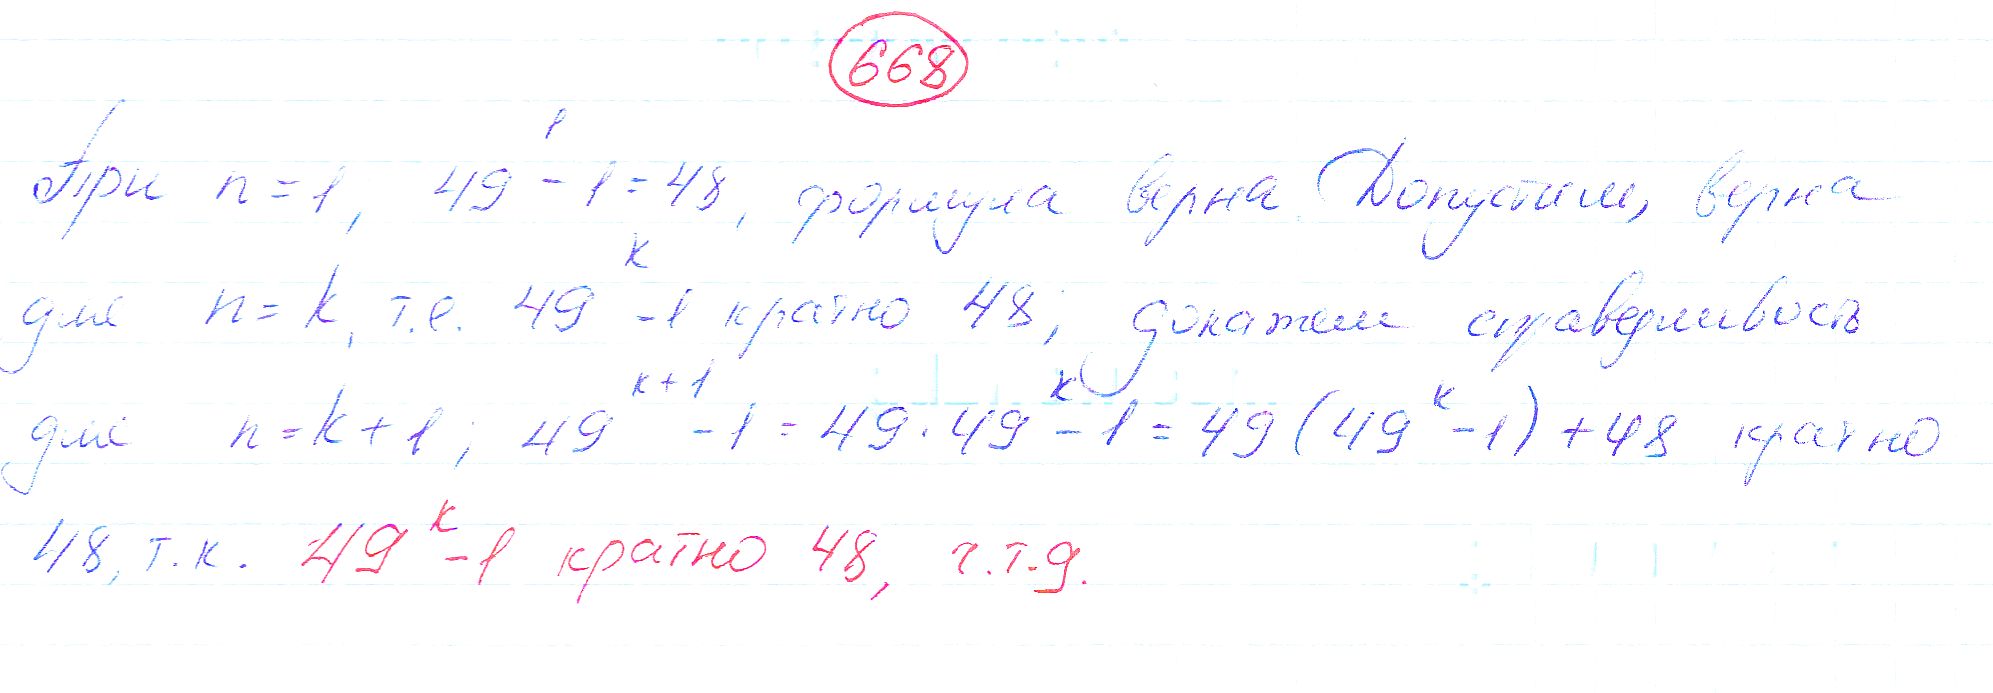 668
При n=1, 49¹-1=48, формула верна. Допустим, верна
для n=k, т.е. 49ᵏ-1 кратно 48; докажем справедливость
для n=k+1; 49ᵏ⁺¹-1=49·49ᵏ-1=49(49ᵏ-1)+48 кратно
48, т.к. 49ᵏ-1 кратно 48, ч.т.д.